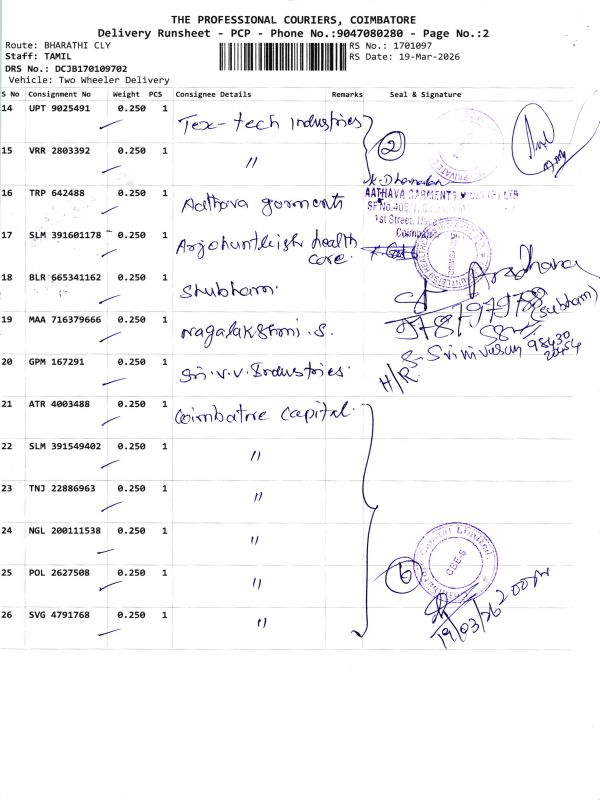 THE PROFESSIONAL COURIERS, COIMBATORE
Delivery Runsheet - PCP - Phone No.:9047080280 - Page No.:2
Route: BHARATHI CLY
RS No.: 1701097
Staff: TAMIL
RS Date: 19-Mar-2026
DRS No.: DCJB170109702
Vehicle: Two Wheeler Delivery
S No Consignment No Weight PCS Consignee Details Remarks Seal & Signature
14 UPT 9025491 0.250 1 Tex-tech Industries
2
15 VRR 2803392 0.250 1 "
16 TRP 642488 0.250 1 Aathava garments
AATHAVA GARMENTS
1st Street,
17 SLM 391601178 0.250 1 health care.
18 BLR 665341162 0.250 1 Shubham.
Aradhana
(Subham)
19 MAA 716379666 0.250 1 Nagalakshmi .S.
S. Srinivasan 98430
20454
20 GPM 167291 0.250 1 Sri.V.V.Industries.
H/R
21 ATR 4003488 0.250 1 Coimbatore Capital.
22 SLM 391549402 0.250 1 "
23 TNJ 22886963 0.250 1 "
24 NGL 200111538 0.250 1 "
Capital Limited
CBE-5
25 POL 2627508 0.250 1 "
6
26 SVG 4791768 0.250 1 "
19/03/26